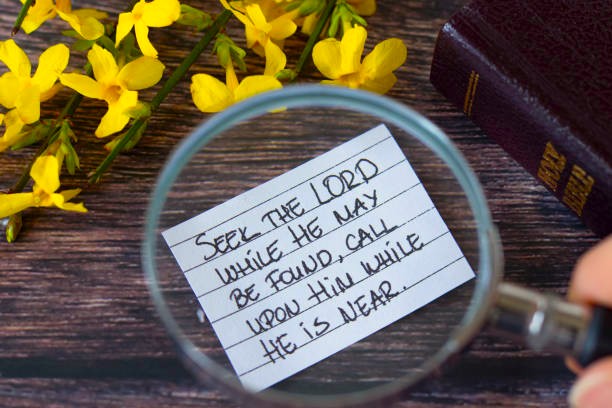 SEEK THE LORD
WHILE HE MAY
BE FOUND, CALL
UPON HIM WHILE
HE IS NEAR.
HOLY
BIBLE